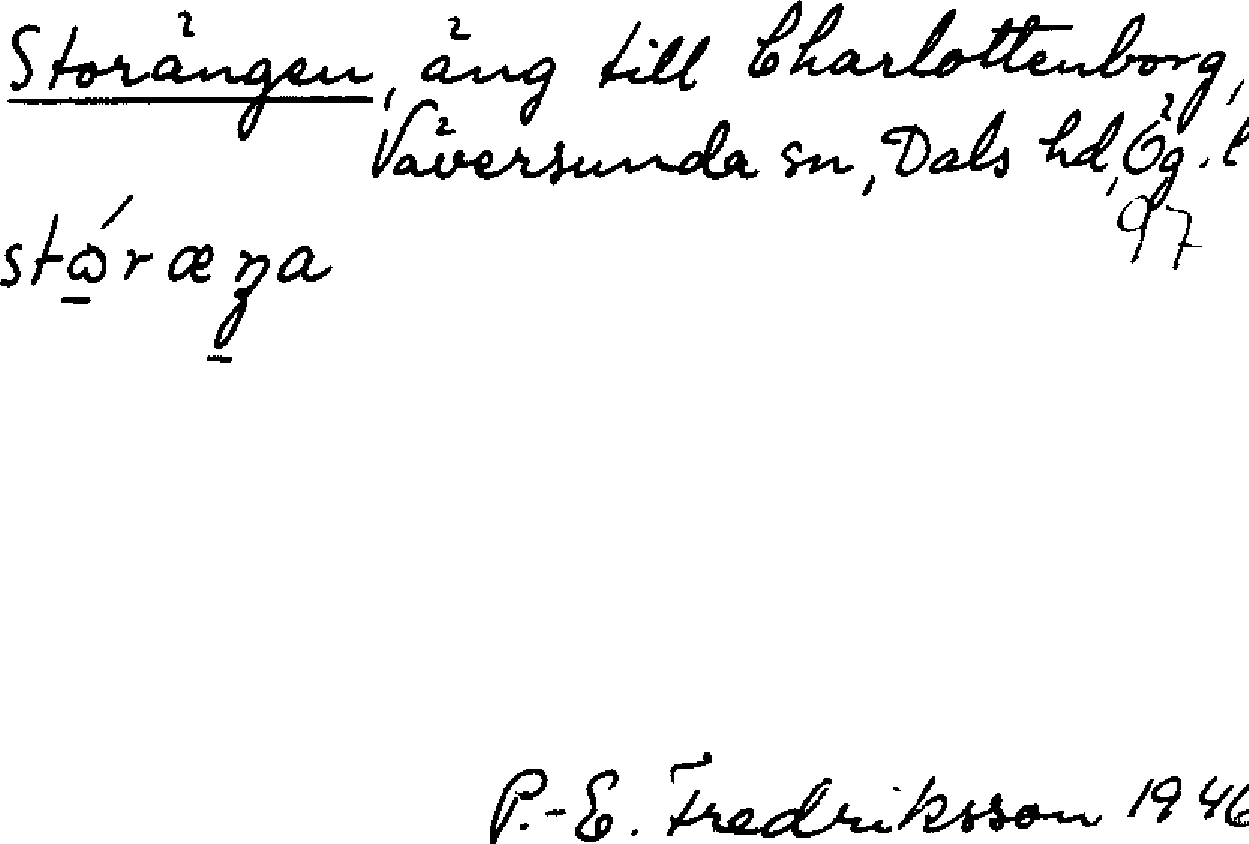 Storängen, äng till Charlottenborg,
Väversunda sn, Dals hd, Ög. l
97
stώ̱ræŋa
P.-E. Fredriksson 1946